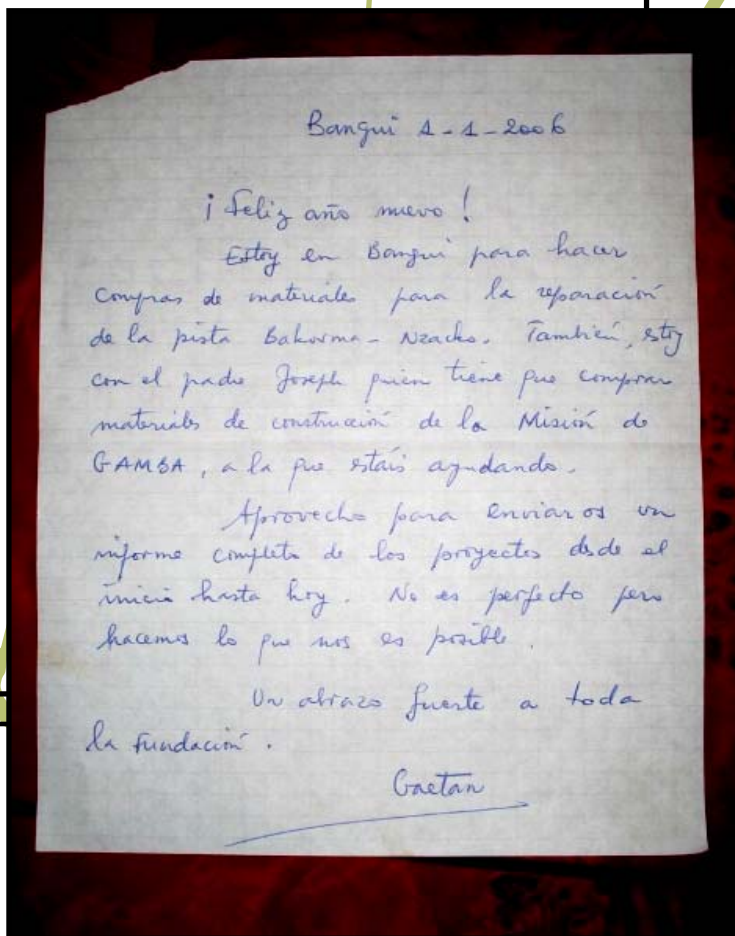 Bangui 1-1-2006
¡Feliz año nuevo!
Estoy en Bangui para hacer
compras de materiales para la reparación
de la pista Bakouma-Nzacko. También, estoy
con el padre Joseph quien tiene que comprar
materiales de construcción de la Misión de
GAMBA, a la que estáis ayudando.
Aprovecho para enviaros un
informe completo de los proyectos desde el
inicio hasta hoy. No es perfecto pero
hacemos lo que nos es posible.
Un abrazo fuerte a toda
la fundación.
Gaetan